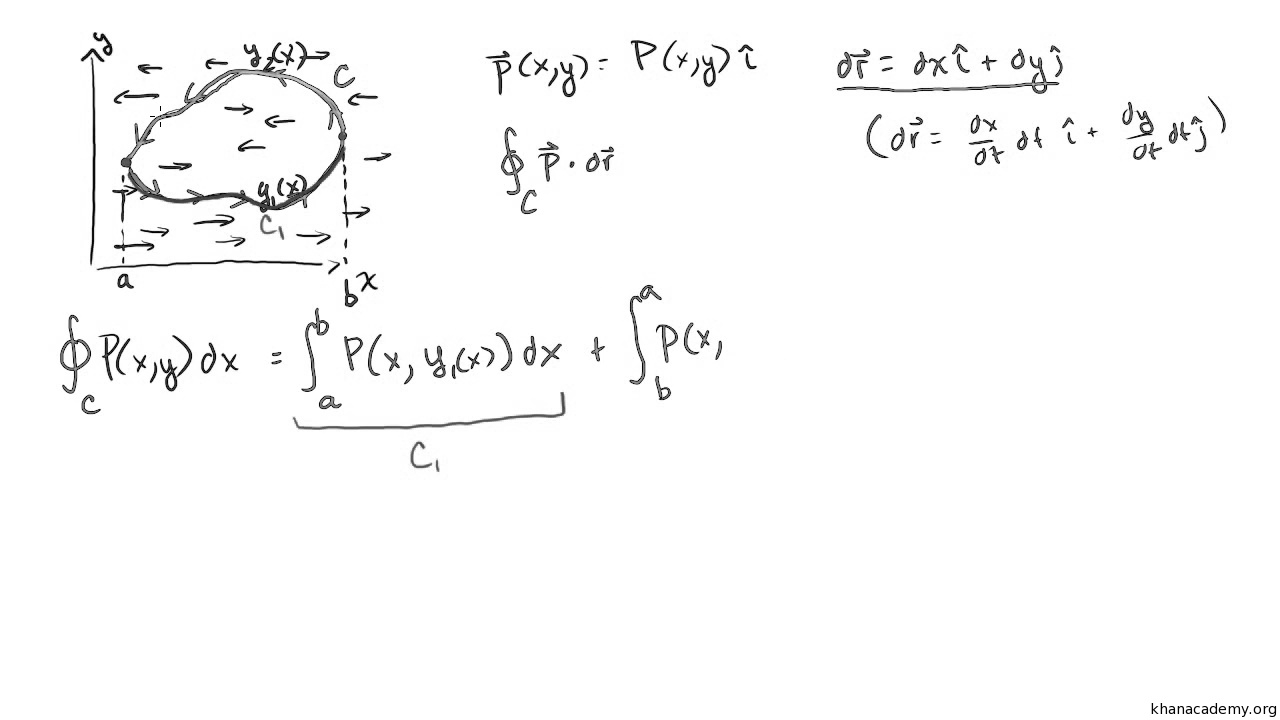 y
y₂(x)
C
y₁(x)
C₁
a
b
x
P⃗(x,y) = P(x,y) î
∮_C P⃗ · dr⃗
dr⃗ = dx î + dy ĵ
(dr⃗ = dx/dt dt î + dy/dt dt ĵ)
∮_C P(x,y) dx = ∫_a^b P(x, y₁(x)) dx + ∫_b^a P(x,
C₁
khanacademy.org